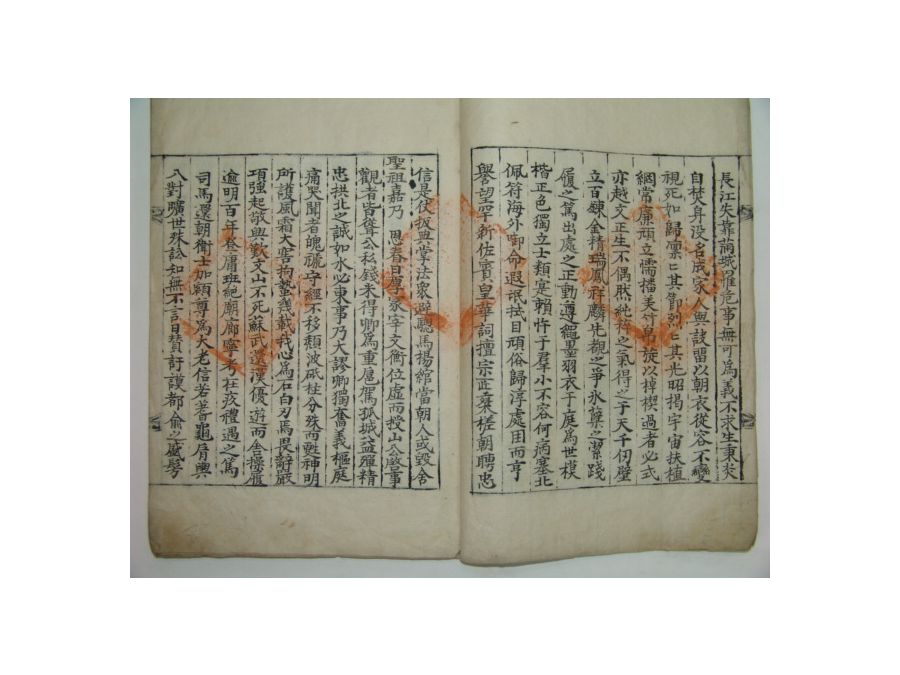 長江失靠滿城罹危事無可爲義不求生秉炎
自焚身没名成家人與訣留以朝衣從容不變
視死如歸凛〻其節烈〻其光昭揭宇宙扶植
綱常廉頑立懦播美竹帛旋以棹楔過者必式
亦越文正生不偶然純粹之氣得之于天千仞壁
立百鍊金精瑞鳳祥麟先覩之爭氷蘗之潔踐
履之篤出處之正動遵繩墨羽衣于庭爲世模
楷正色獨立士類寔賴忤于羣小不容何病塞北
佩符海外卸命退祗拭目頑俗歸淳處困而亨
譽望罕新佐賓皇華詞壇宗匠乘槎朝聘忠
信是仗扳輿掌法衆辟驄馬楊綰當朝人或毁舍
聖祖嘉乃 思眷日厚冡宰文衡位虛而授山公啓事
觀者皆聳公私錢米得卿爲重扈駕孤城益殫精
忠拱北之誠如水必東事乃大謬卿獨奮義樞庭
痛哭聞者魄褫守經不移頹波砥柱分殊而甦神明
所護風霜大窖拘縶幾載我心爲石白刃焉畏辭嚴
項強起敬興歎文山不死蘇武還漢優遊而舍操履
逾明百年登庸班絶廟廊寧考在亥禮遇之篤
司馬還朝衛士加額尊爲大老信若蓍龜肩輿
入對曠世殊訟知無不言日賛訏謨都兪之盛髣